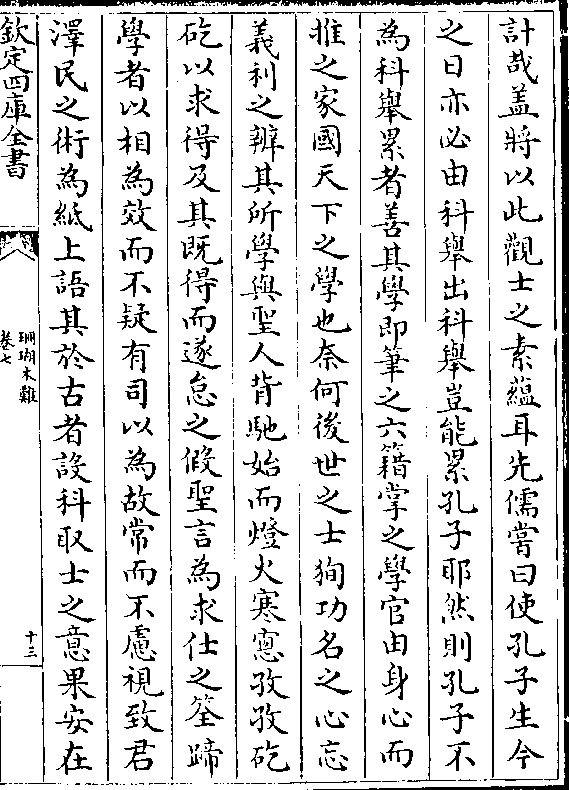 計哉盖將以此觀士之素蘊耳先儒嘗曰使孔子生今
之日亦必由科舉出科舉豈能累孔子耶然則孔子不
為科舉累者善其學即筆之六籍掌之學官由身心而
推之家國天下之學也奈何後世之士狥功名之心忘
義利之辨其所學與聖人背馳始而燈火寒窓孜孜矻
矻以求得及其既得而遂怠之假聖言為求仕之筌蹄
學者以相為效而不疑有司以為故常而不慮視致君
澤民之術為紙上語其於古者設科取士之意果安在
欽定四庫全書
珊瑚木難
卷七
十三